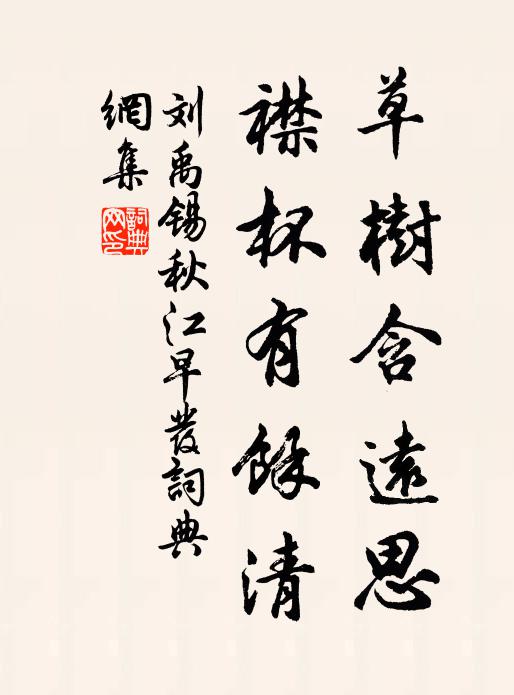 草樹含遠思
襟杯有餘清
刘禹锡秋江早發詞典
網集
詞典
网印